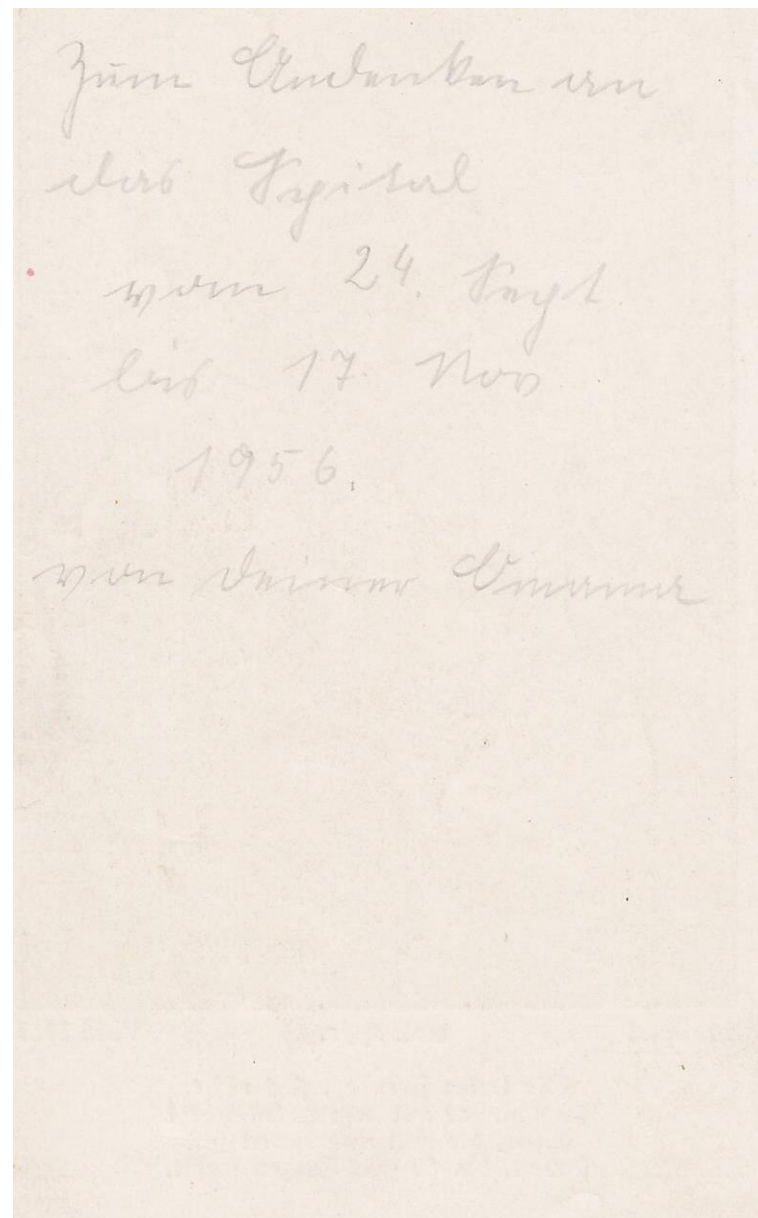 Zum Andenken an
das Spital
vom 24. Sept.
bis 17. Nov
1956.
von deiner Omama